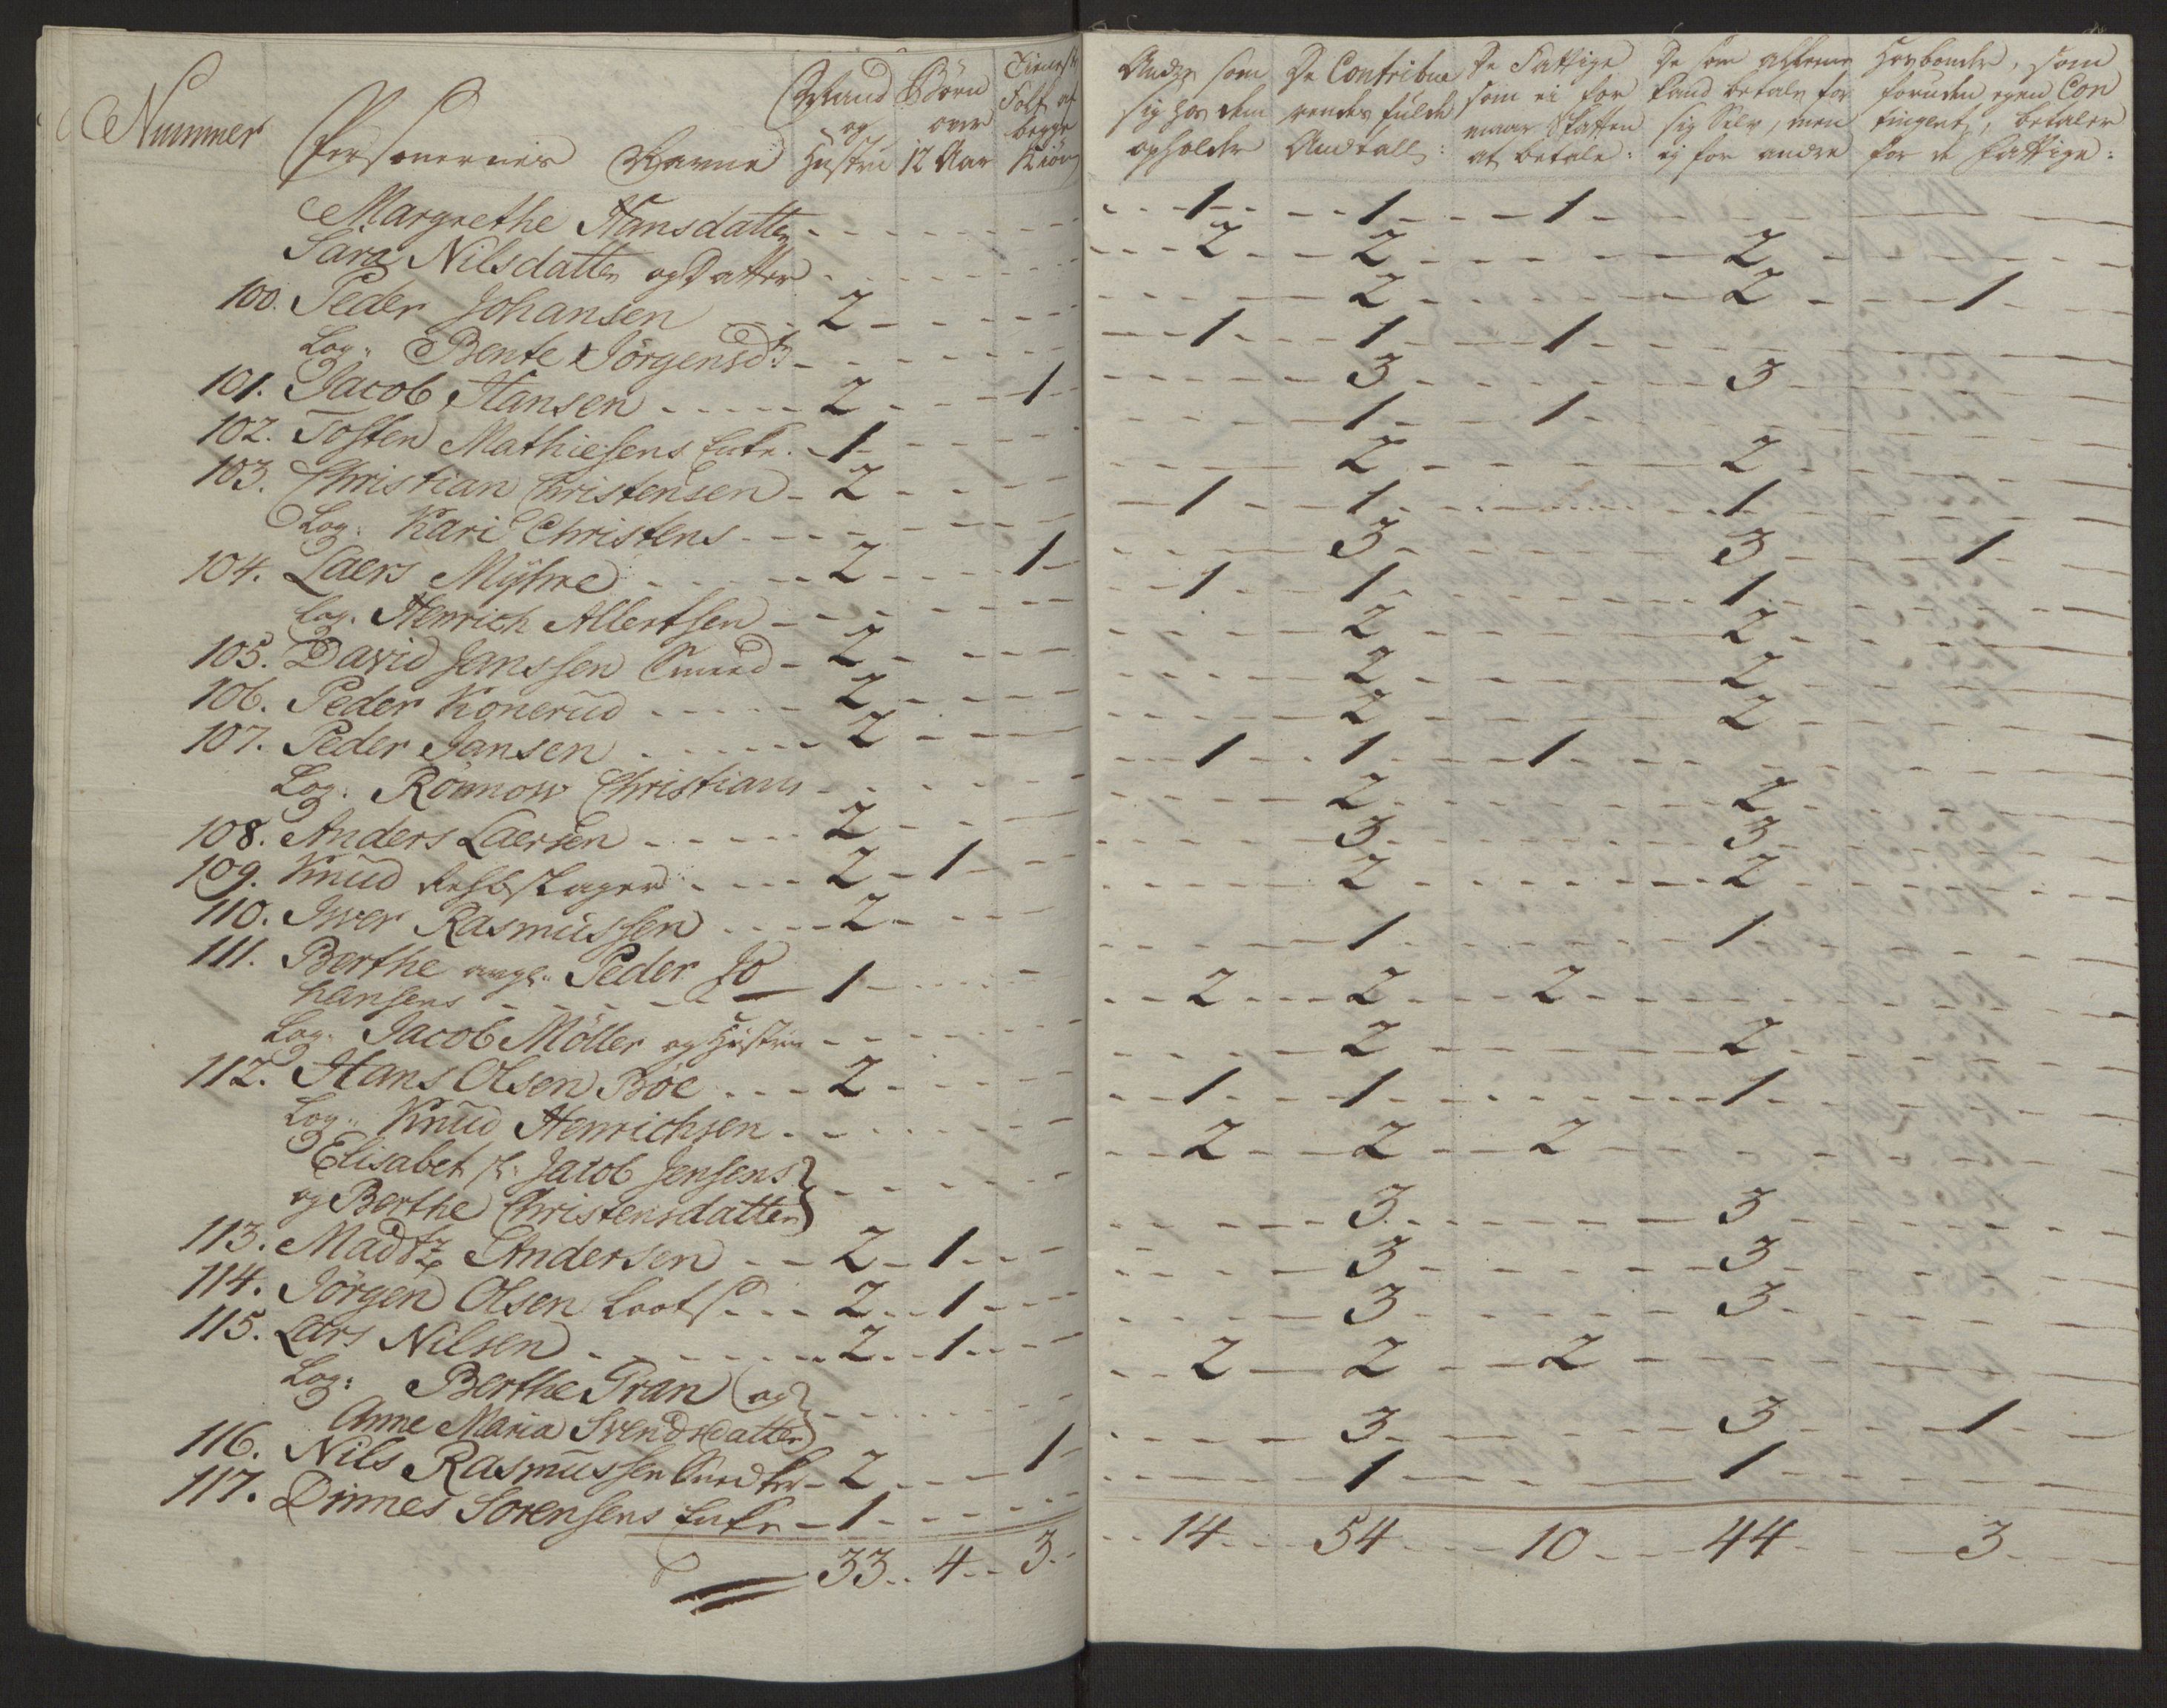 Nummer Personernes Navne Mand og Hustru Børn over 12 Aar Tieneste Folk af begge Kiøn Andre som sig hos dem opholder De Contribuerendes fulde Andtall: De Fattige som ei formaar Skatten at betale: De som alleene kand betale for sig Selv, men ej for andre Hosbonder, som foruden egen Contingent, betaler for de fattige:
Margrethe Hansdatter - - - 1 - 1 - 1 -
Sara Nilsdatter og Datter - - - 2 - 2 - - 2 -
100. Peder Johansen 2 - - - 2 - - 2 - 1 -
Log: Bente Jörgensd: - - - 1 - 1 - 1 -
101. Jacob Hansen 2 - - 1 - - 3 - - 3 -
102. Tosten Mathiesens Enke. 1 - - - 1 - 1 -
103. Christian Christensen 2 - - - 2 - - 2 -
Log: Kari Christens - - - 1 - 1 - - 1 -
104. Laers Myhre 2 - - 1 - - 3 - - 3 - 1 -
Log. Henrich Albertsen - - - 1 - 1 - - 1 -
105. David Janssen Smed 2 - - - 2 - - 2 -
106. Peder Konerud 2 - - - 2 - - 2 -
107. Peder Jansen 2 - - - 2 - - 2 -
Log: Rönnow Christians - - - 1 - 1 - 1 -
108. Anders Laersen 2 - - - 2 - - 2 -
109. Knud Rebslager 2 - 1 - - 3 - - 3 -
110. Iwer Rasmussen 2 - - - 2 - - 2 -
111. Berthe Peder Jo
hansens 1 - - - 1 - - 1 -
Log. Jacob Möller og Hustrue - - - 2 - 2 - 2 -
112. Hans Olsen Böe 2 - - - 2 - - 2 -
Log: Knud Henrichsen - - - 1 - 1 - - 1 -
Elisabet Jacob Jensens
og Berthe Christensdatter - - - 2 - 2 - 2 -
113. Madtz Andersen 2 - 1 - - 3 - - 3 -
114. Jörgen Olsen Loots 2 - 1 - - 3 - - 3 -
115. Lars Nilsen 2 - 1 - - 3 - - 3 -
Log: Berthe Gran og
Anne Maria Svendsdatter - - - 2 - 2 - 2 -
116. Nils Rasmussen 2 - - 1 - - 3 - - 3 - 1 -
117. Dinnes Sorensens Enke 1 - - - 1 - - 1 -
33 - 4 - 3 - 14 - 54 - 10 - 44 - 3 -